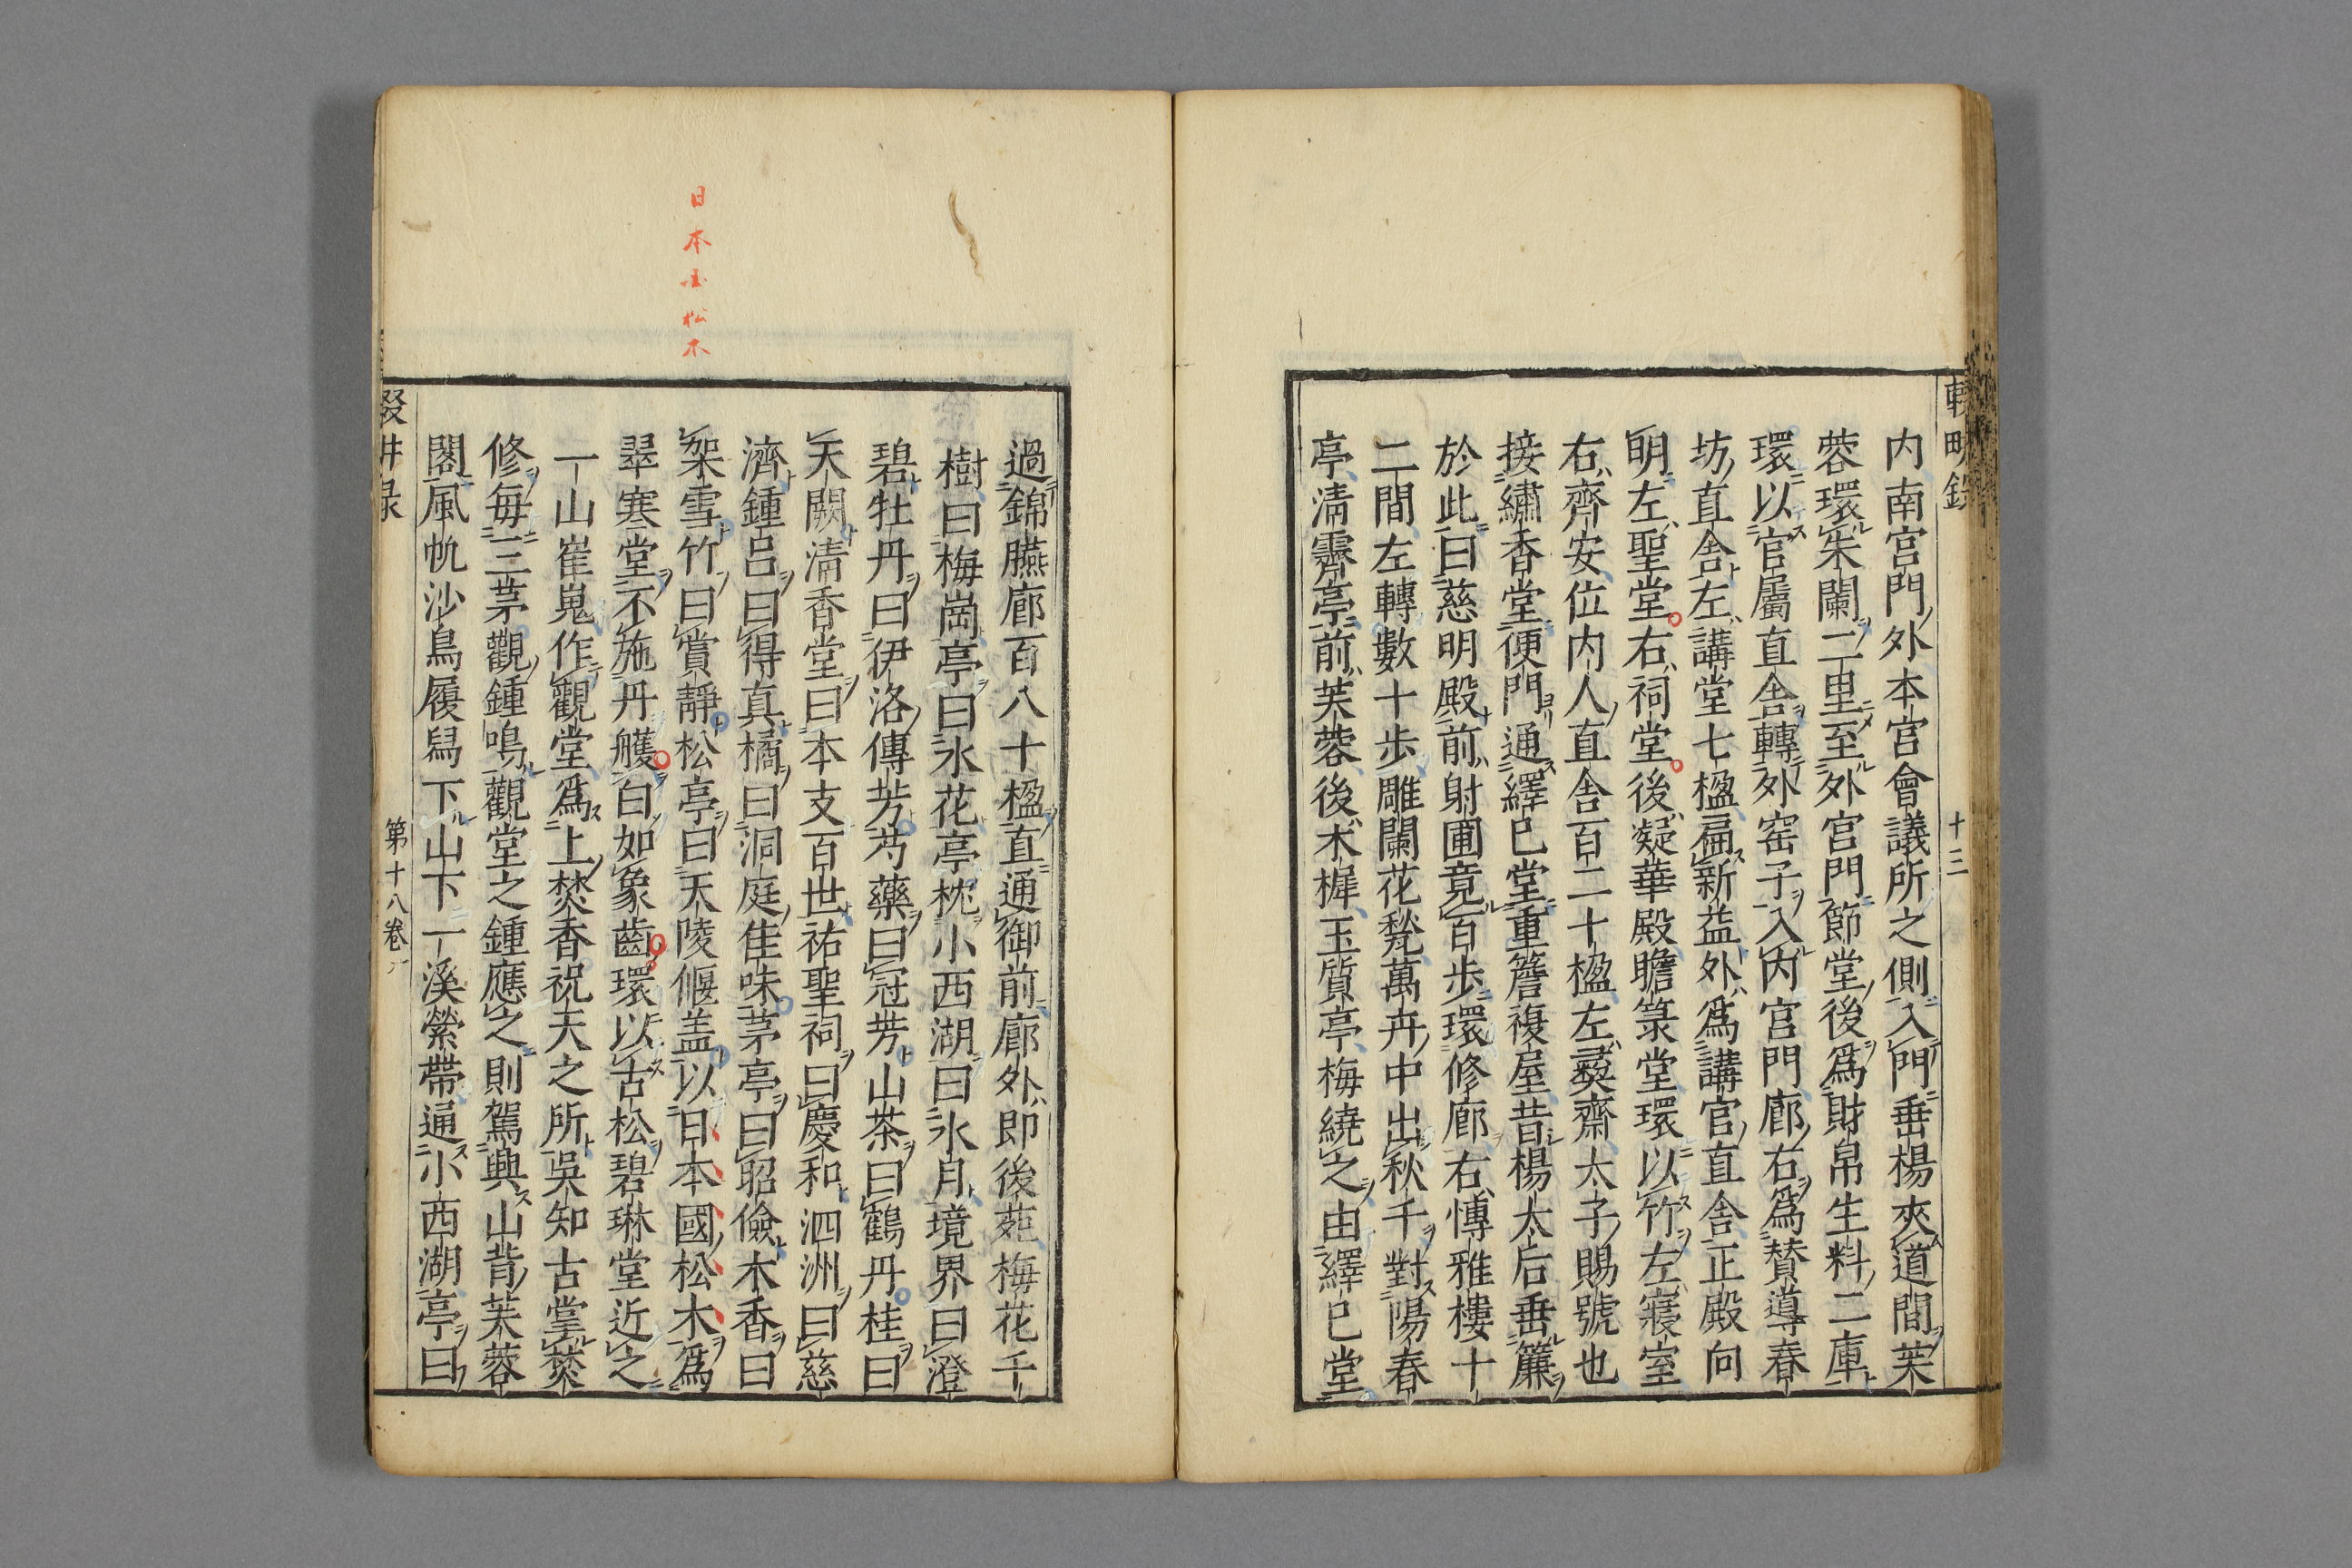 輟畊錄
十三
内南宫門外本宫會議所之側入門垂楊夾道間芙
蓉環朱闌二里至外宫門節堂後爲財帛生料二庫
環以官屬直舍轉外窑子入内宫門廊右爲賛導春
坊直舍左講堂七楹扁新益外爲講官直舍正殿向
明左聖堂右祠堂後凝華殿瞻箓堂環以竹左寝室
右齊安位内人直舎百二十楹左彛齋太子賜號也
接繡香堂便門通繹已堂重簷複屋昔楊太后垂簾
於此曰慈明殿前射圃竟百步環修廊右愽雅樓十
二間左轉數十步雕闌花甃萬卉中出秋千對陽春
亭清霽亭前芙蓉後木樨玉質亭梅繞之由繹已堂
過錦臙廊百八十楹直通御前廊外即後苑梅花千
樹曰梅崗亭曰氷花亭枕小西湖曰氷月境界曰澄
碧牡丹曰伊洛傳芳芍藥曰冠芳山茶曰鶴丹桂曰
天闕清香堂曰本支百世祐聖祠曰慶和泗洲曰慈
濟鍾吕曰得真橘曰洞庭佳味茅亭曰昭儉木香曰
架雪竹曰賞靜松亭曰天陵偃盖以日本國松木爲
翠寒堂不施丹雘白如象齒環以古松碧琳堂近之
一山崔嵬作觀堂爲上焚香祝天之所吳知古掌焚
修每三茅觀鍾鳴觀堂之鍾應之則駕興山背芙蓉
閣風帆沙鳥履舄下山下一溪縈帶通小西湖亭曰
日本国松木
輟畊录
第十八卷